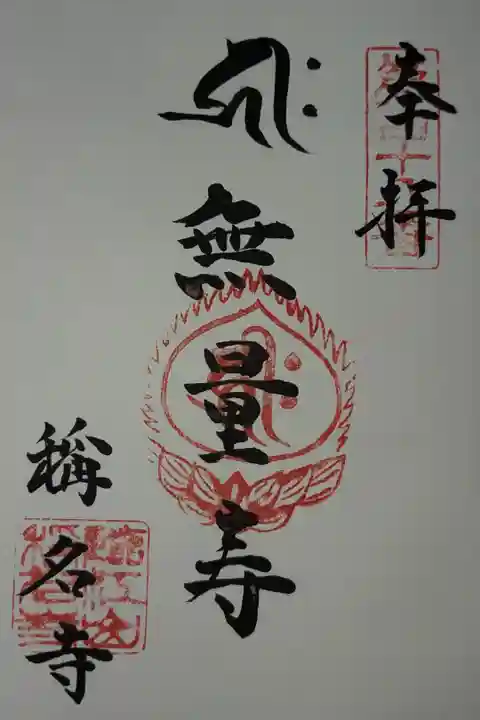 奉拝
𑖮𑖿𑖨𑖱𑖾 無量寿
稱名寺